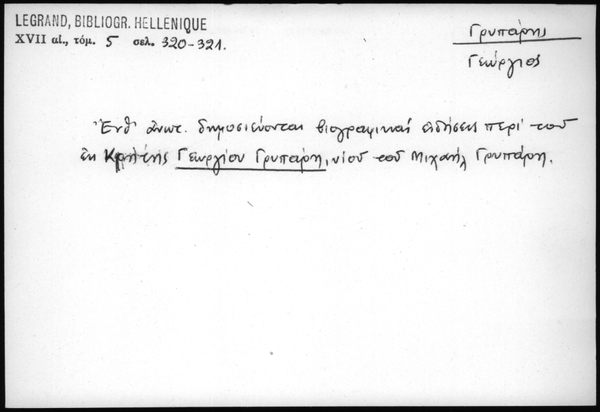 LEGRAND, BIBLIOGR. HELLENIQUE
XVII αἰ., τόμ. 5 σελ. 320-321.
Γρυπάρης
Γεώργιος
Ἔνθ' ἀνωτ. δημοσιεύονται βιογραφικαί εἰδήσεις περί τοῦ
ἐκ Κρήτης Γεωργίου Γρυπάρη, υἱοῦ τοῦ Μιχαήλ Γρυπάρη.